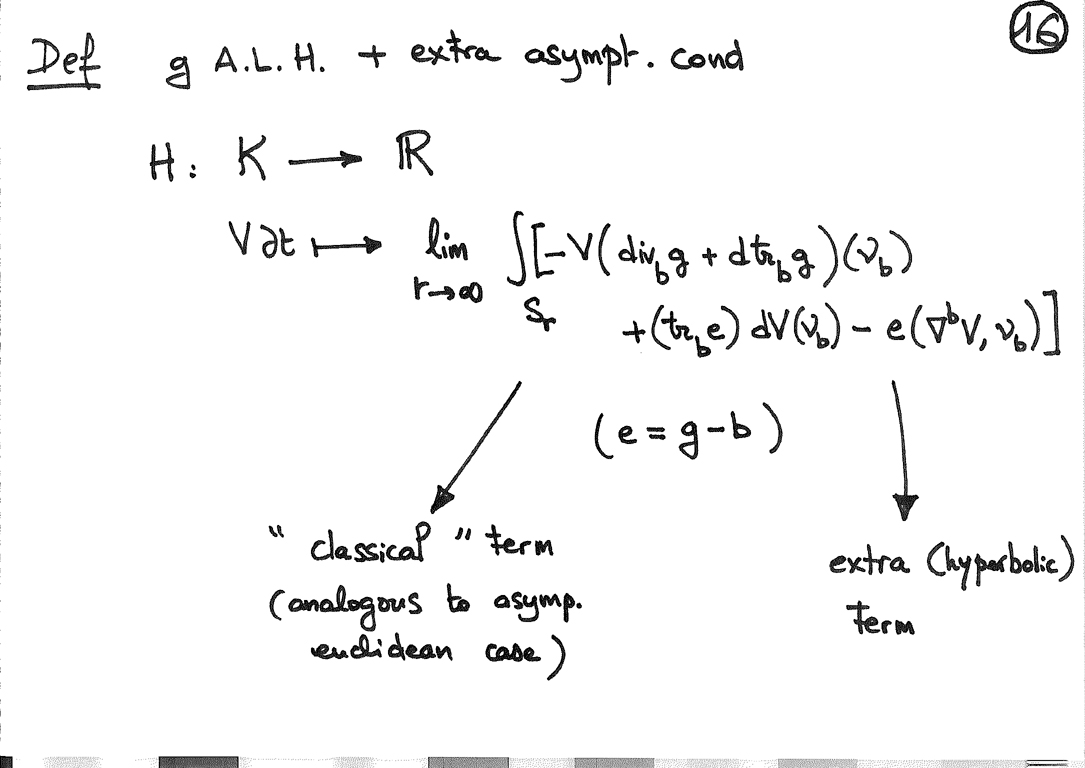 16
Def g A.L.H. + extra asympt. cond
H: K ⟶ ℝ
V∂t ⟼ lim_{r→∞} ∫_{S_r} [-V(div_b g + dtr_b g)(ν_b)
+(tr_b e) dV(ν_b) - e(∇^b V, ν_b)]
(e = g-b)
"classical" term
(analogous to asymp.
euclidean case)
extra (hyperbolic)
term